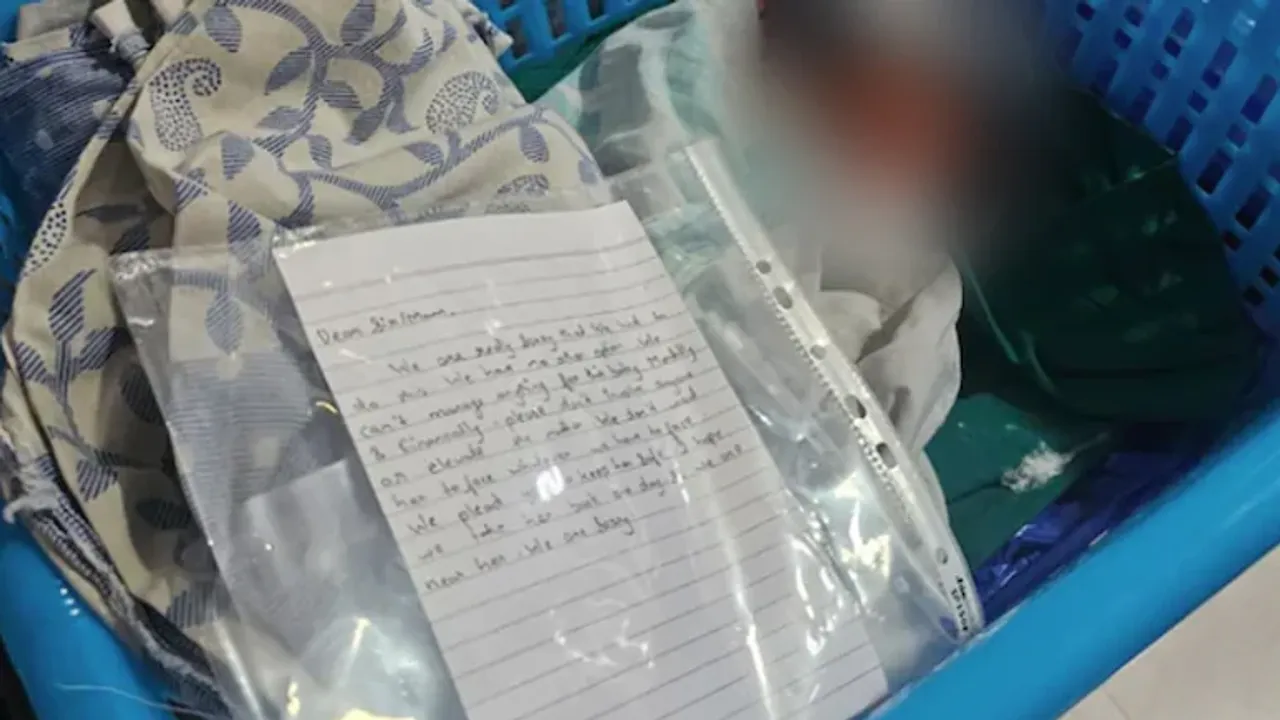 Dear Sir/Mam,
We are really sorry that We had to
do this We have no other option We
can't manage anything for this baby Mentally
& Financially. please don't involve anyone
or elevate the matter We don't want
her to face whatever we have to face.
We plead keep her safe. I hope
we take her back one day. we are
near her. We are sorry